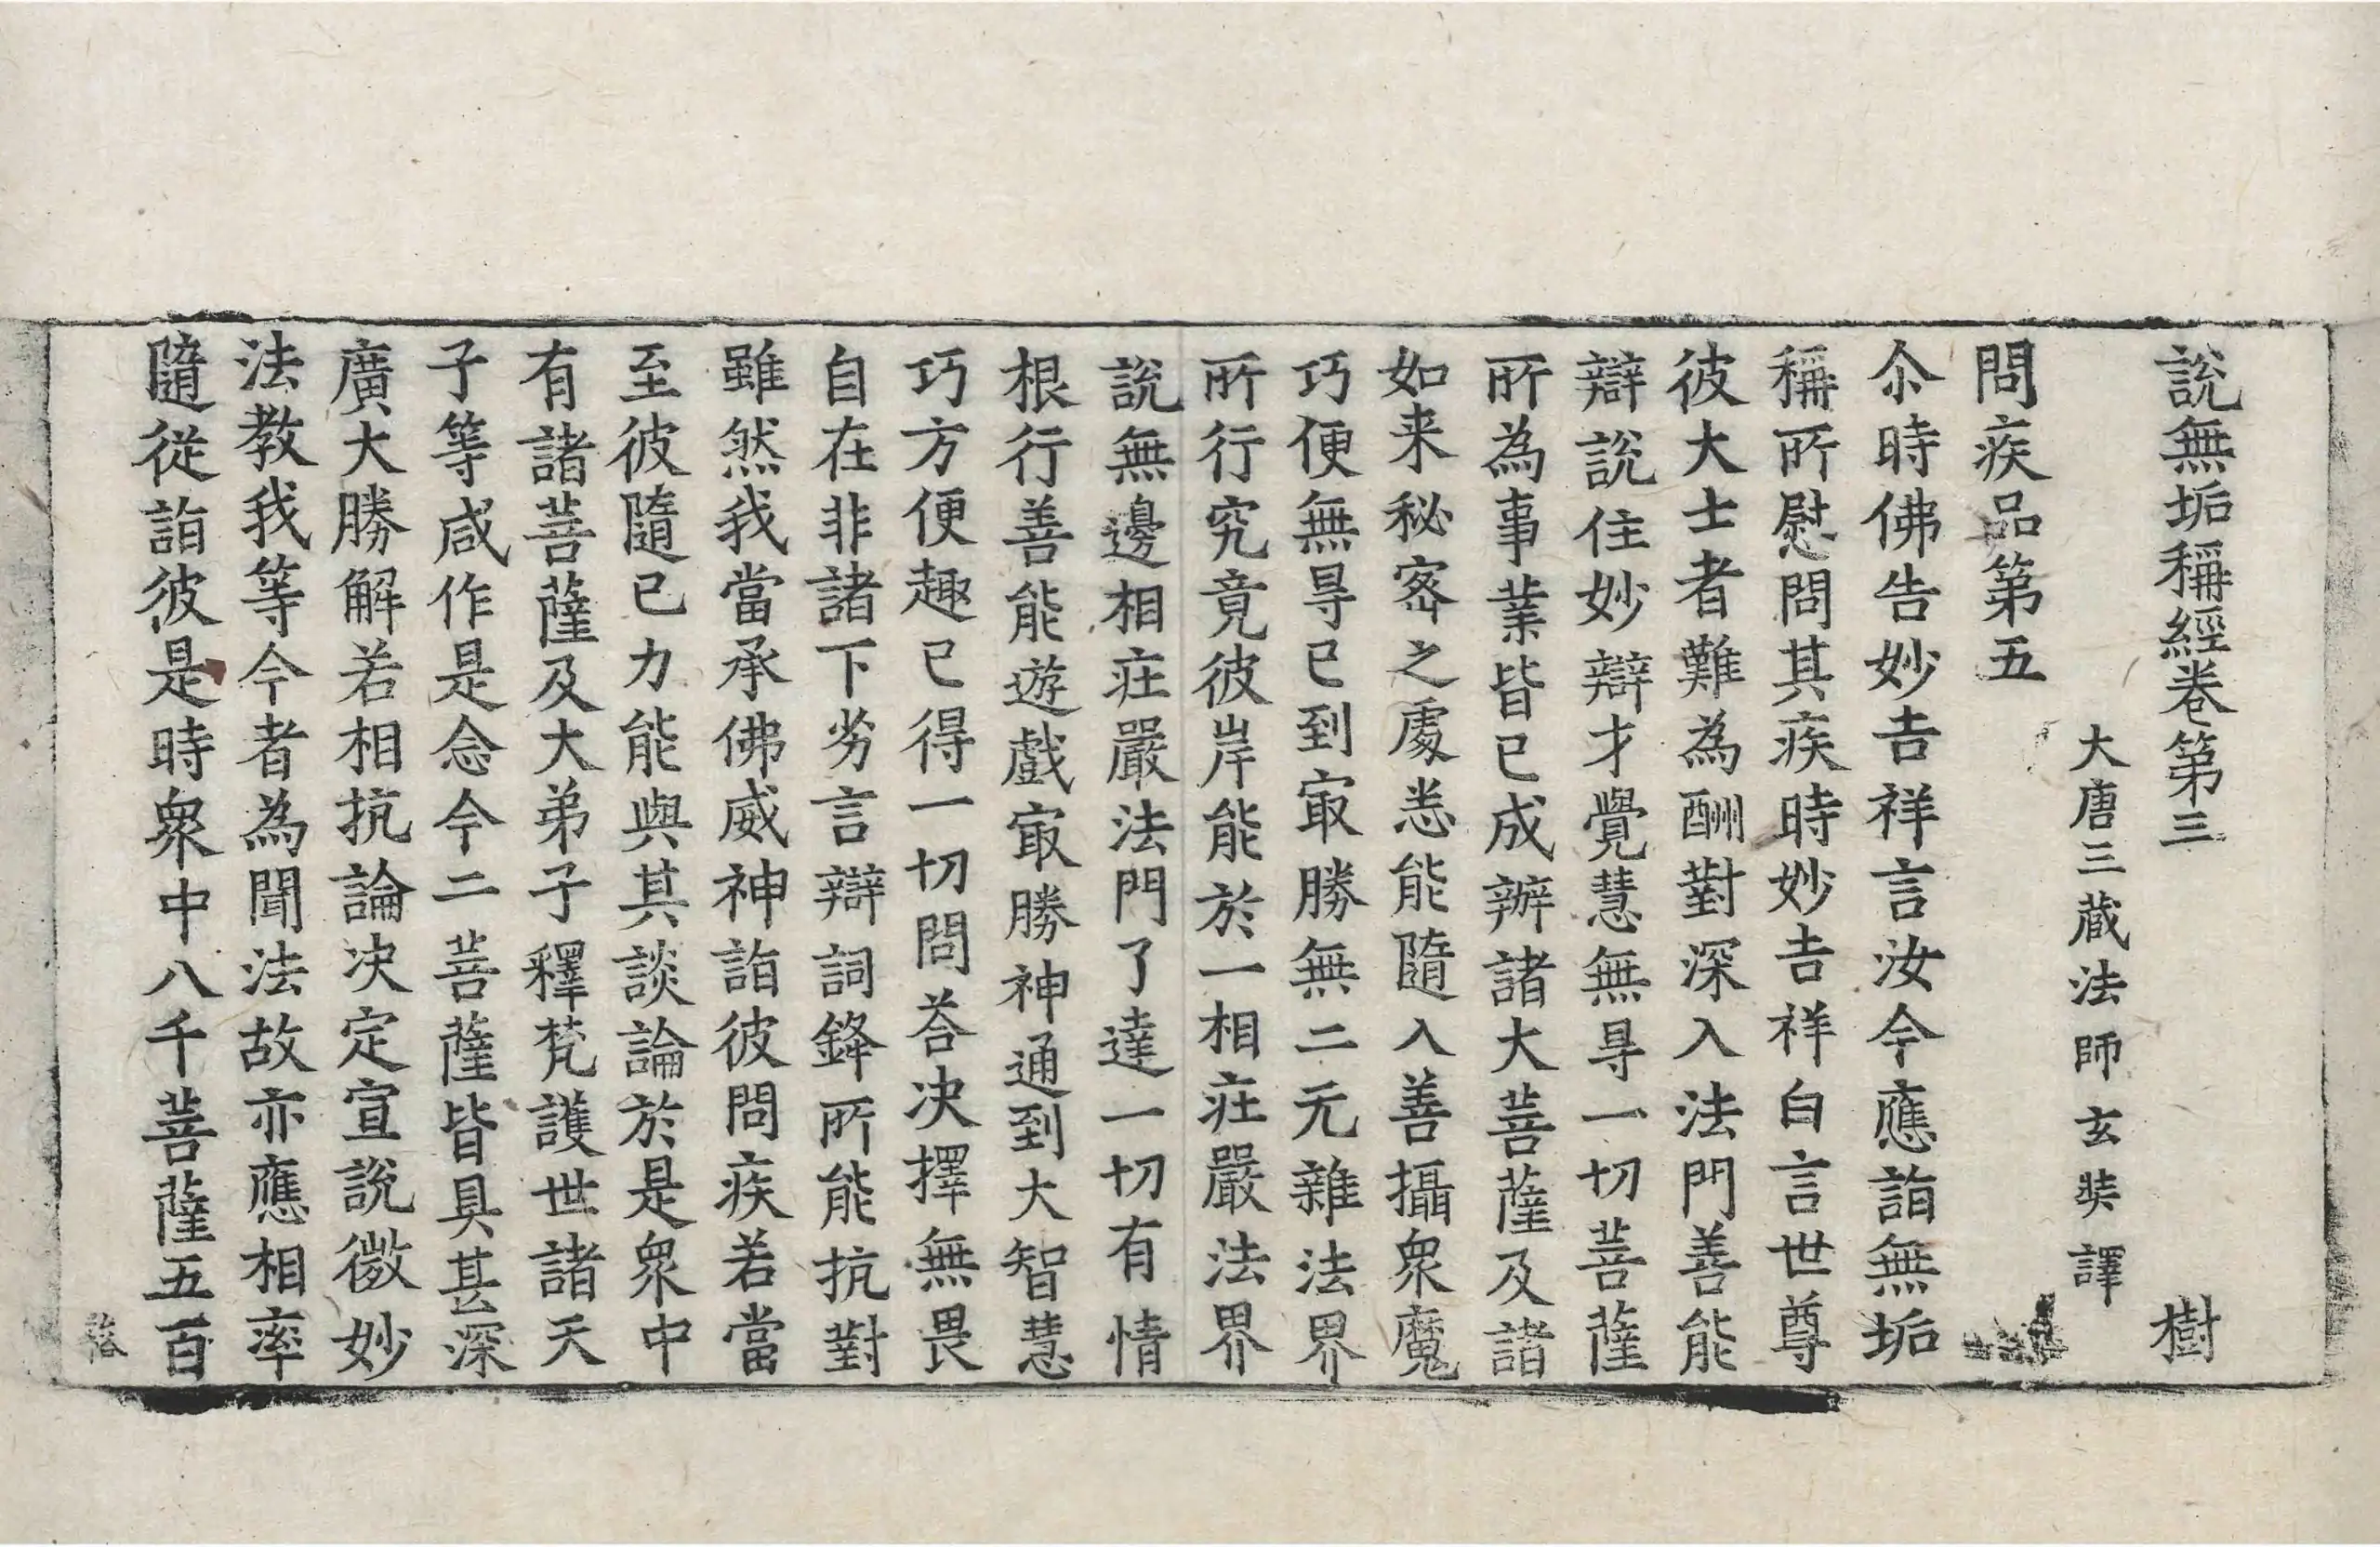 說無垢稱經卷第三 樹
大唐三藏法師玄奘譯
問疾品第五
尒時佛告妙吉祥言汝今應詣無垢
稱所慰問其疾時妙吉祥白言世尊
彼大士者難為酬對深入法門善能
辯說住妙辯才覺慧無㝵一切菩薩
所為事業皆已成辦諸大菩薩及諸
如来秘密之處悉能隨入善攝眾魔
巧便無㝵已到㝡勝無二无雜法界
所行究竟彼岸能於一相莊嚴法界
說無邊相莊嚴法門了達一切有情
根行善能遊戲㝡勝神通到大智慧
巧方便趣已得一切問荅决擇無畏
自在非諸下劣言辯詞鋒所能抗對
雖然我當承佛威神詣彼問疾若當
至彼隨已力能與其談論於是眾中
有諸菩薩及大弟子釋梵護世諸天
子等咸作是念今二菩薩皆具甚深
廣大勝解若相抗論决定宣說微妙
法教我等今者為聞法故亦應相率
隨從詣彼是時眾中八千菩薩五百